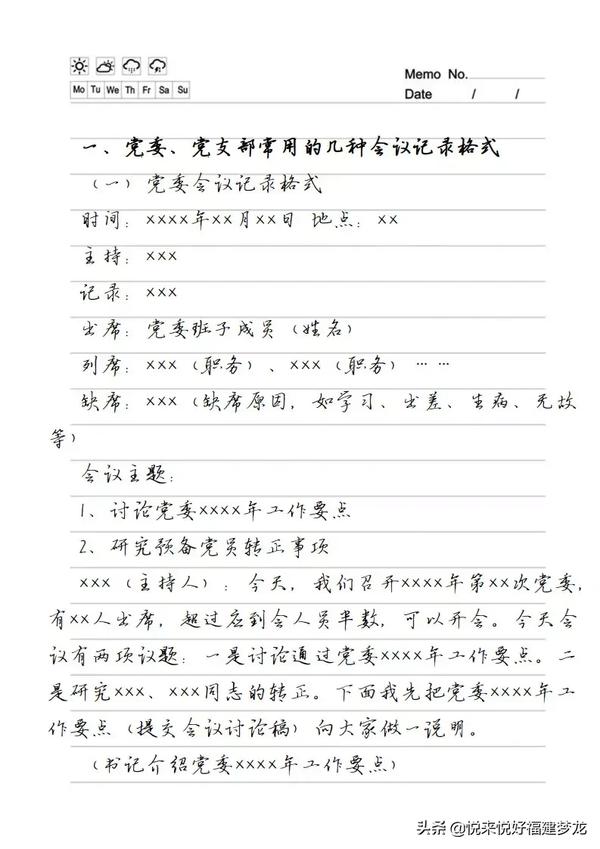 Memo No.
Mo Tu We Th Fr Sa Su
Date / /
一、党委、党支部常用的几种会议记录格式
（一）党委会议记录格式
时间：××××年××月××日 地点：××
主持：×××
记录：×××
出席：党委班子成员（姓名）
列席：×××（职务）、×××（职务）……
缺席：×××（缺席原因，如学习、出差、生病、无故
等）
会议主题：
1、讨论党委××××年工作要点
2、研究预备党员转正事项
×××（主持人）：今天，我们召开××××年第××次党委，
有××人出席，超过应到会人员半数，可以开会。今天会
议有两项议题：一是讨论通过党委××××年工作要点。二
是研究×××、×××同志的转正。下面我先把党委××××年工
作要点（提交会议讨论稿）向大家做一说明。
（书记介绍党委××××年工作要点）
头条 @悦来悦好福建梦龙